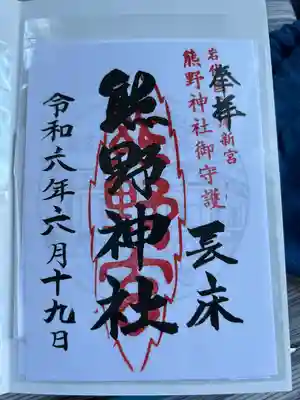 奉拝
岩代 新宮
熊野神社御守護
長床
熊野神社
令和六年六月十九日